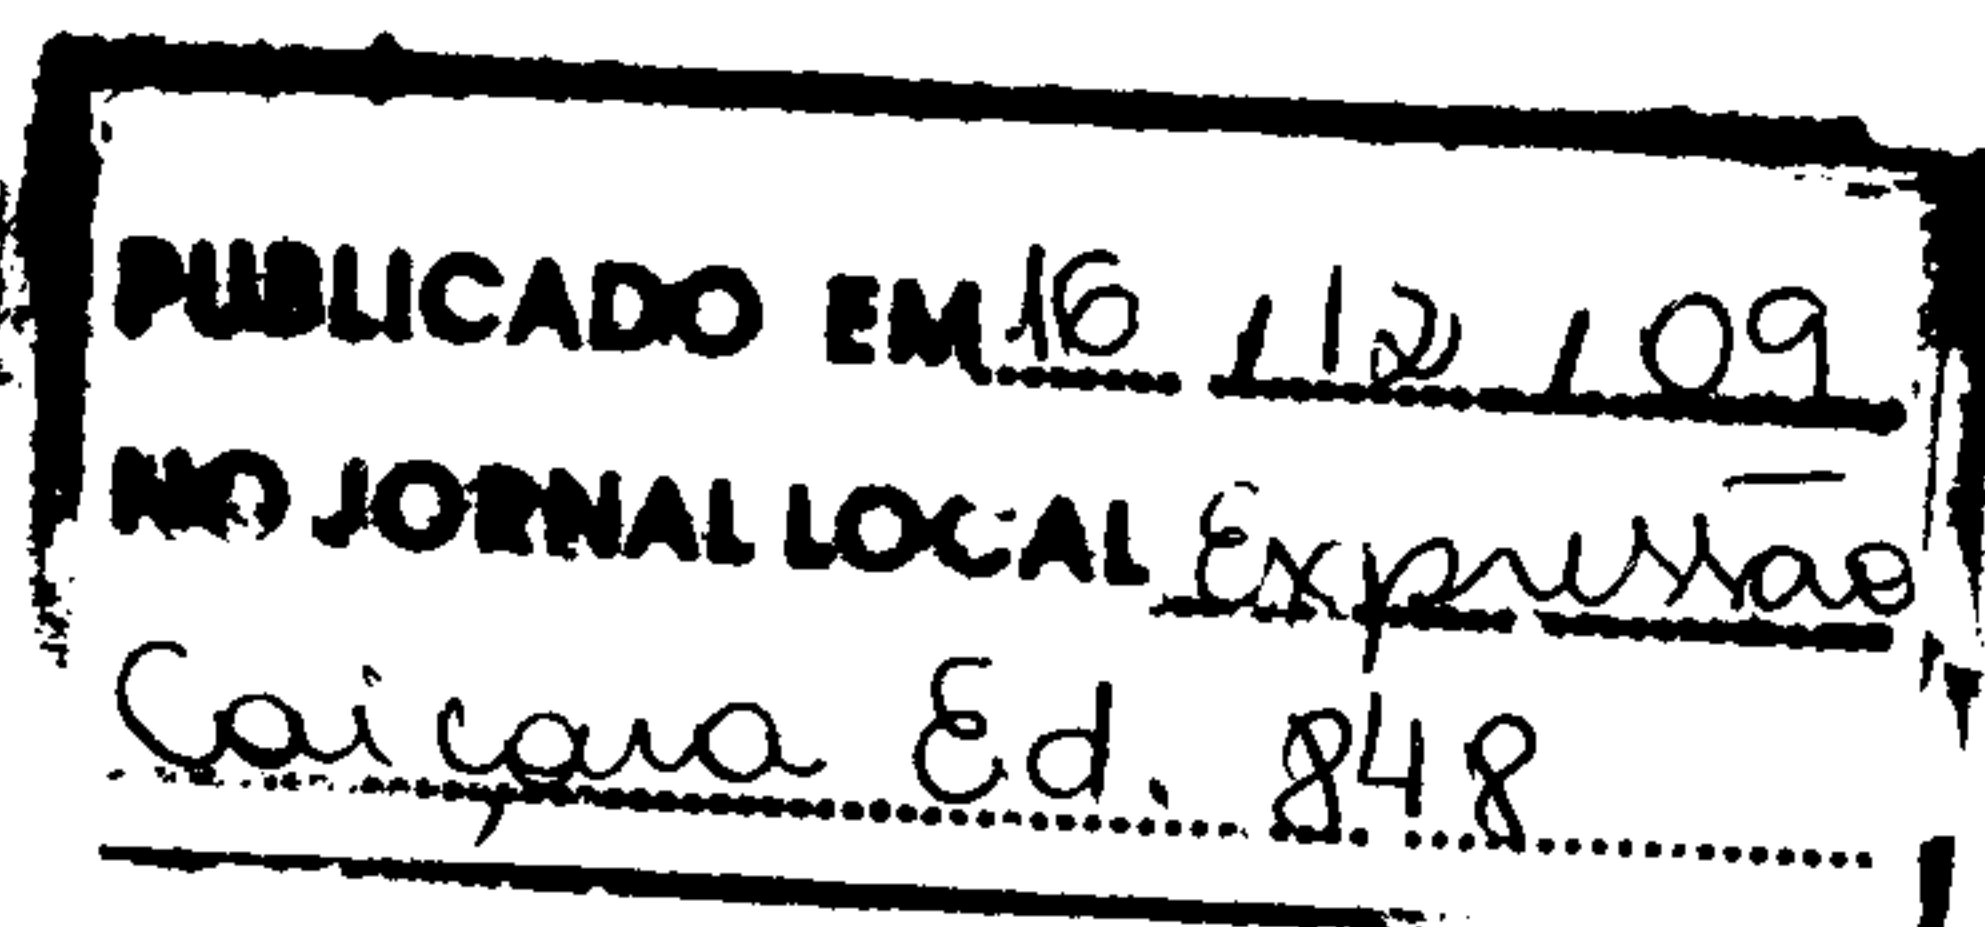 PUBLICADO EM 16 / 12 / 09
NO JORNAL LOCAL Expressão
Caiçara Ed. 848